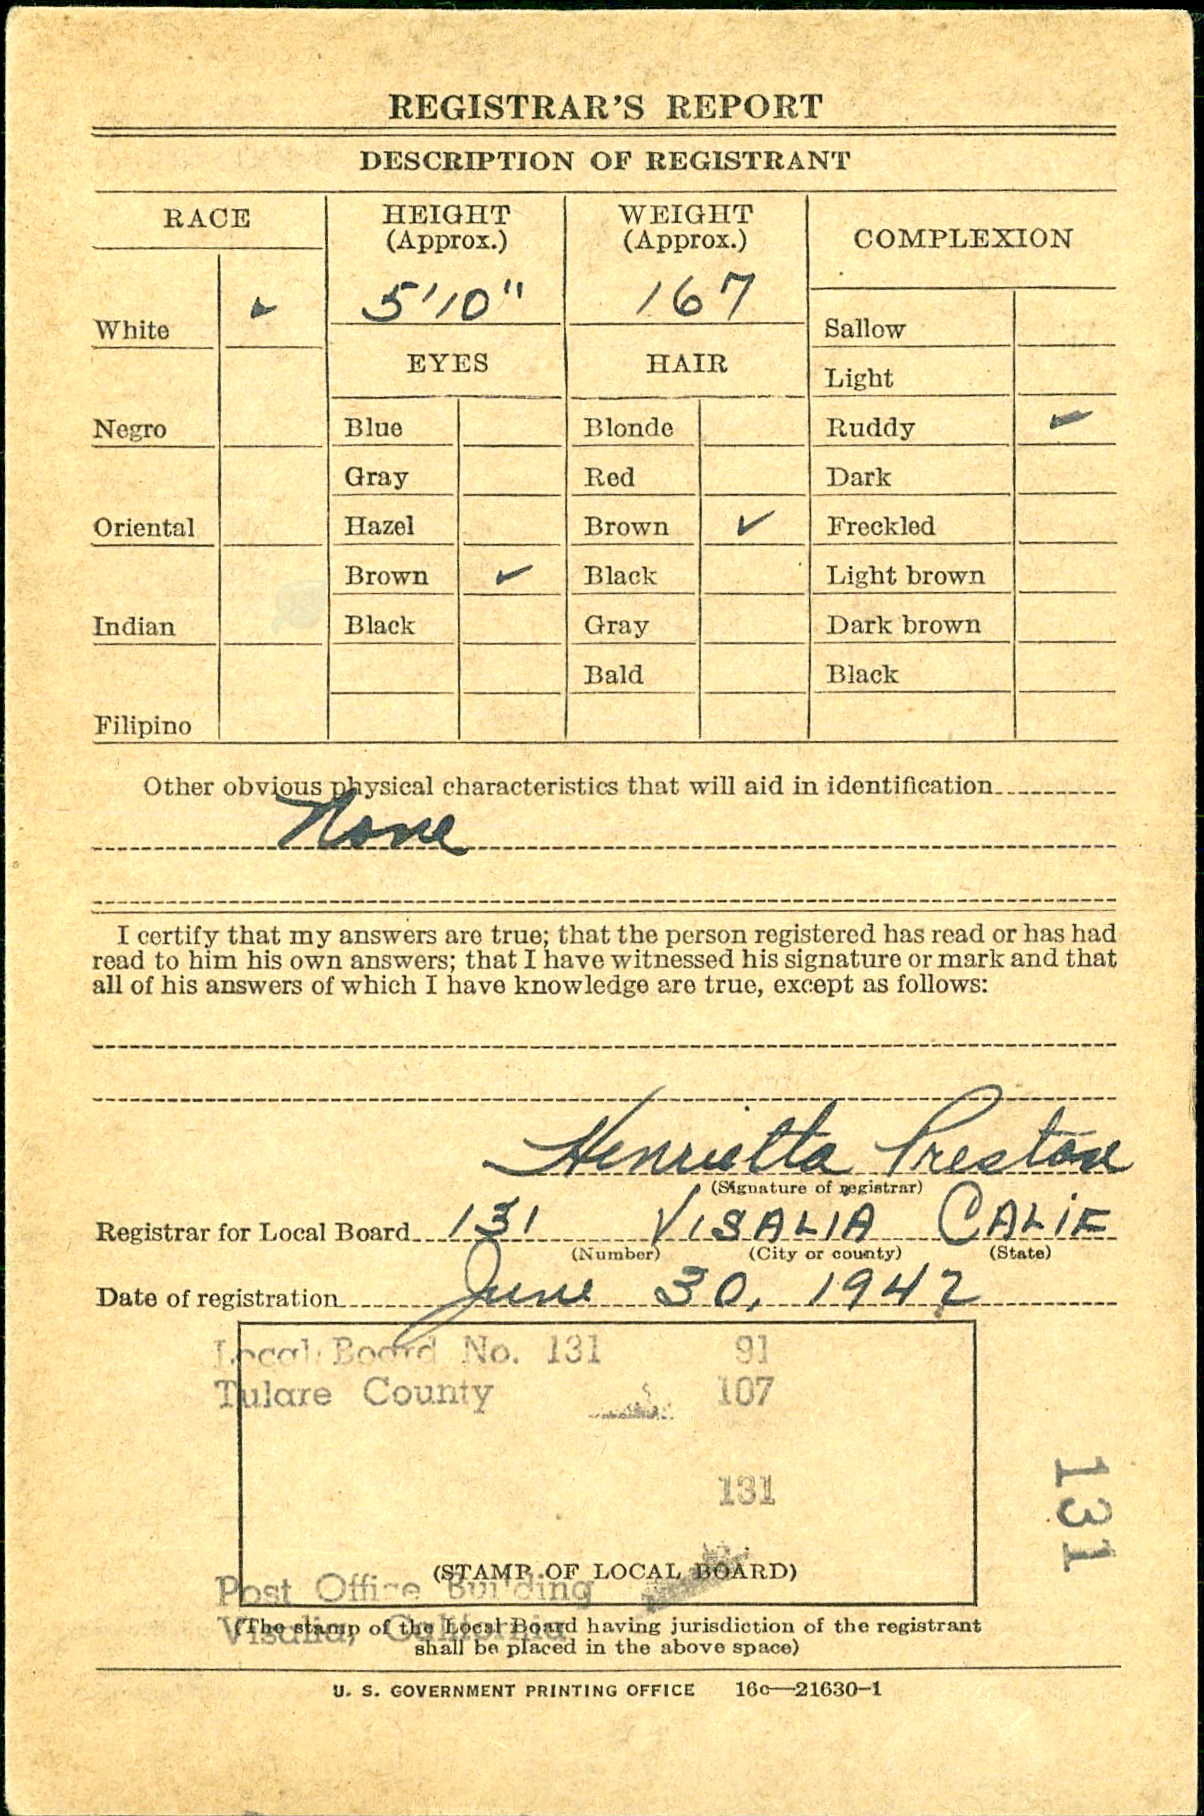 REGISTRAR'S REPORT
DESCRIPTION OF REGISTRANT
RACE
HEIGHT
(Approx.)
WEIGHT
(Approx.)
COMPLEXION
White ✓
5'10"
167
Sallow
EYES
HAIR
Light
Negro
Blue
Blonde
Ruddy ✓
Gray
Red
Dark
Oriental
Hazel
Brown ✓
Freckled
Brown ✓
Black
Light brown
Indian
Black
Gray
Dark brown
Bald
Black
Filipino
Other obvious physical characteristics that will aid in identification
None
I certify that my answers are true; that the person registered has read or has had
read to him his own answers; that I have witnessed his signature or mark and that
all of his answers of which I have knowledge are true, except as follows:
Henrietta Preston
(Signature of registrar)
Registrar for Local Board 131 VISALIA CALIF
(Number) (City or county) (State)
Date of registration June 30, 1942
Local Board No. 131 91
Tulare County 107
131
131
(STAMP OF LOCAL BOARD)
Post Office Building
Visalia, California
(The stamp of the Local Board having jurisdiction of the registrant
shall be placed in the above space)
U. S. GOVERNMENT PRINTING OFFICE 16c—21630-1